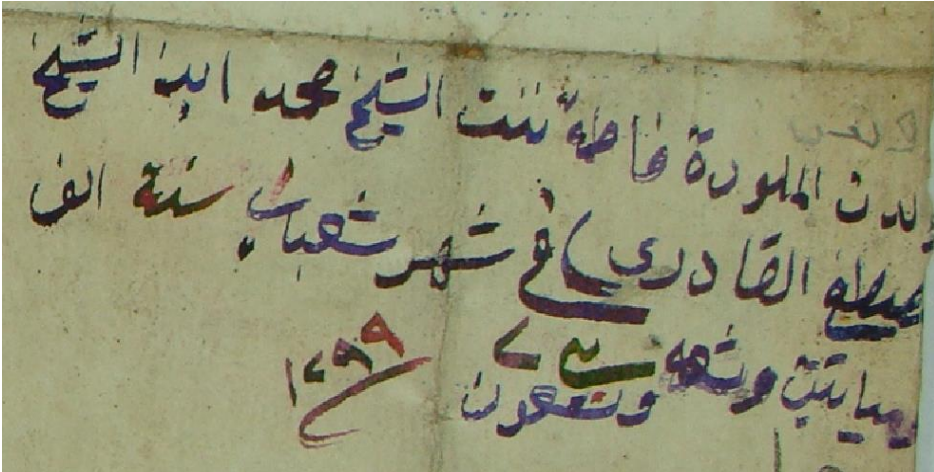 ولدت المولودة فاطمة بنت الشيخ محمد ابن الشيخ
مصطفى القادري في شهر شعبان سنة الف
ومايتين وتسعه وتسعون ١٢٩٩